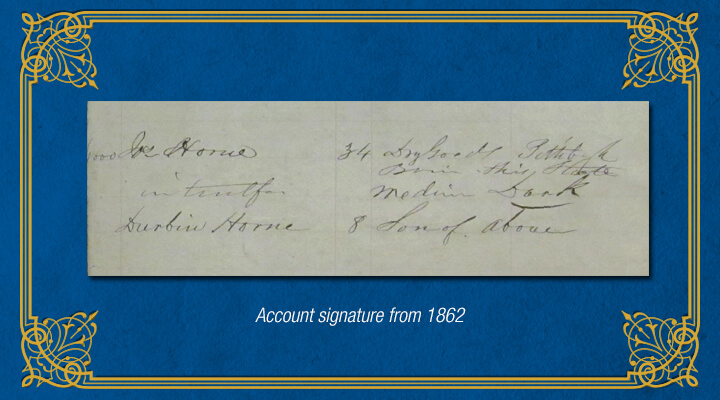 Jos Horne 34 Dry Goods Pittsburgh
Born this State
in trust for Medium Dark
Durbin Horne 8 Son of above
Account signature from 1862